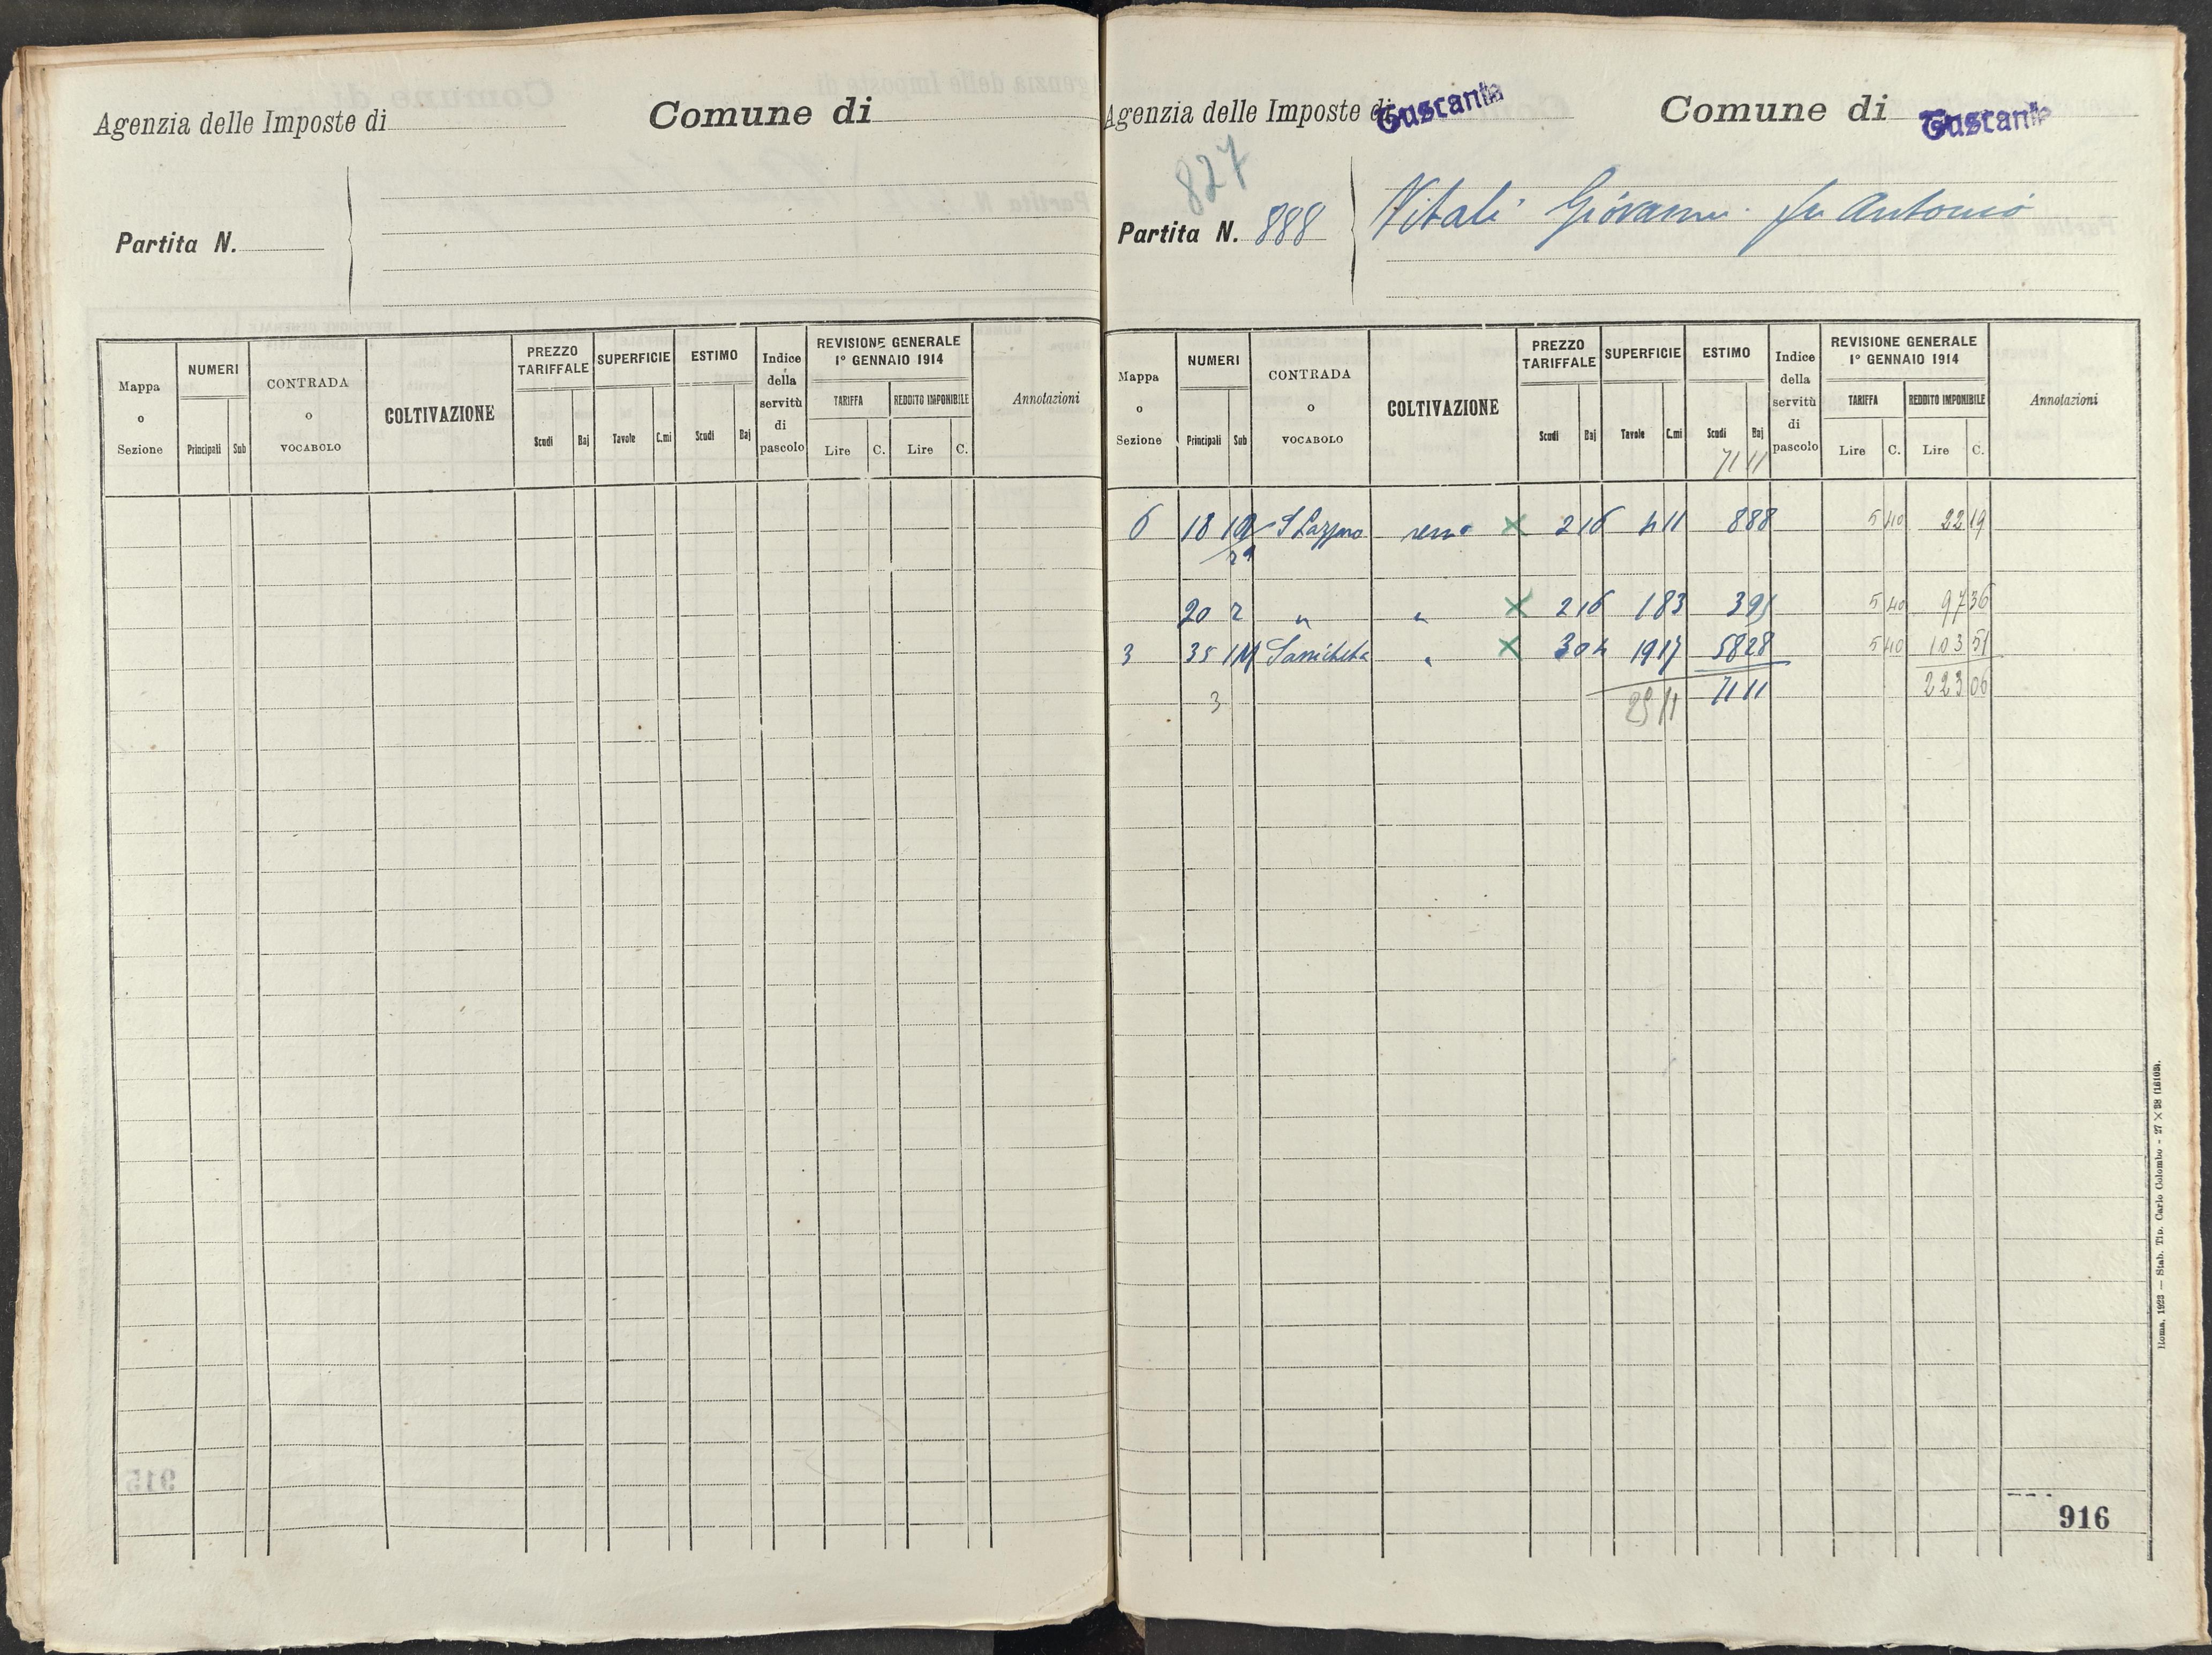 Agenzia delle Imposte di
Comune di
Partita N.
Mappa o Sezione
NUMERI
Principali Sub
CONTRADA o VOCABOLO
COLTIVAZIONE
PREZZO TARIFFALE
Scudi Baj
SUPERFICIE
Tavole C.mi
ESTIMO
Scudi Baj
Indice della servitù di pascolo
REVISIONE GENERALE
1° GENNAIO 1914
TARIFFA REDDITO IMPONIBILE
Lire C. Lire C.
Annotazioni
Agenzia delle Imposte di Tuscania
Comune di Tuscania
827
Partita N. 888
Vitali Giovanni fu Antonio
Mappa o Sezione
NUMERI
Principali Sub
CONTRADA o VOCABOLO
COLTIVAZIONE
PREZZO TARIFFALE
Scudi Baj
SUPERFICIE
Tavole C.mi
ESTIMO
Scudi Baj
71 11
Indice della servitù di pascolo
REVISIONE GENERALE
1° GENNAIO 1914
TARIFFA REDDITO IMPONIBILE
Lire C. Lire C.
Annotazioni
6 18 S Lazzaro 2 16 4 11 8 88 5 40 22 19
20 2 " " 2 16 1 83 3 95 5 40 97 36
3 35 " 3 04 19 17 58 28 5 40 103 51
3 25 11 71 11 223 06
916
Roma, 1923 — Stab. Tip. Carlo Colombo - 27 × 38 (16103).